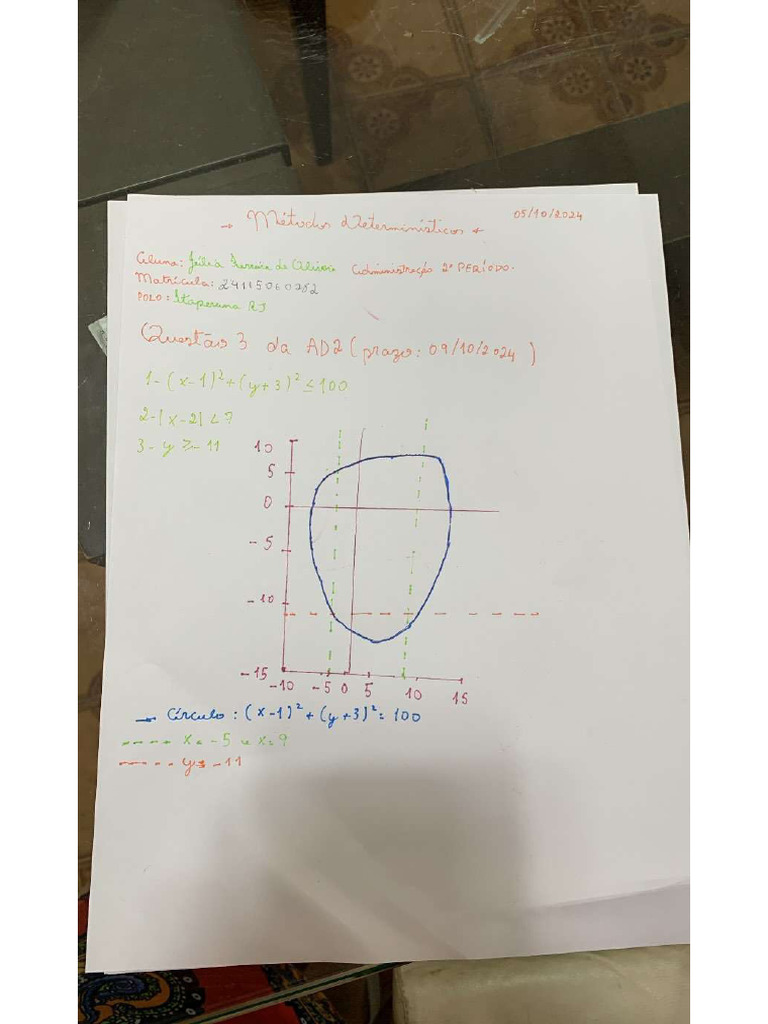 → Métodos determinísticos
05/10/2024
Aluna: Júlia de Oliveira Administração 2º PERÍODO.
Matrícula:
POLO: Itaperuna RJ
Questão 3 da AD2 (prazo: 09/10/2024)
1-(x-1)²+(y+3)²≤100
2-|x-2|<7
3-y≥-11
10
5
0
-5
-10
-15
-10 -5 0 5 10 15
→ Círculo: (x-1)²+(y+3)²=100
---- x=-5 e x=9
---- y=-11